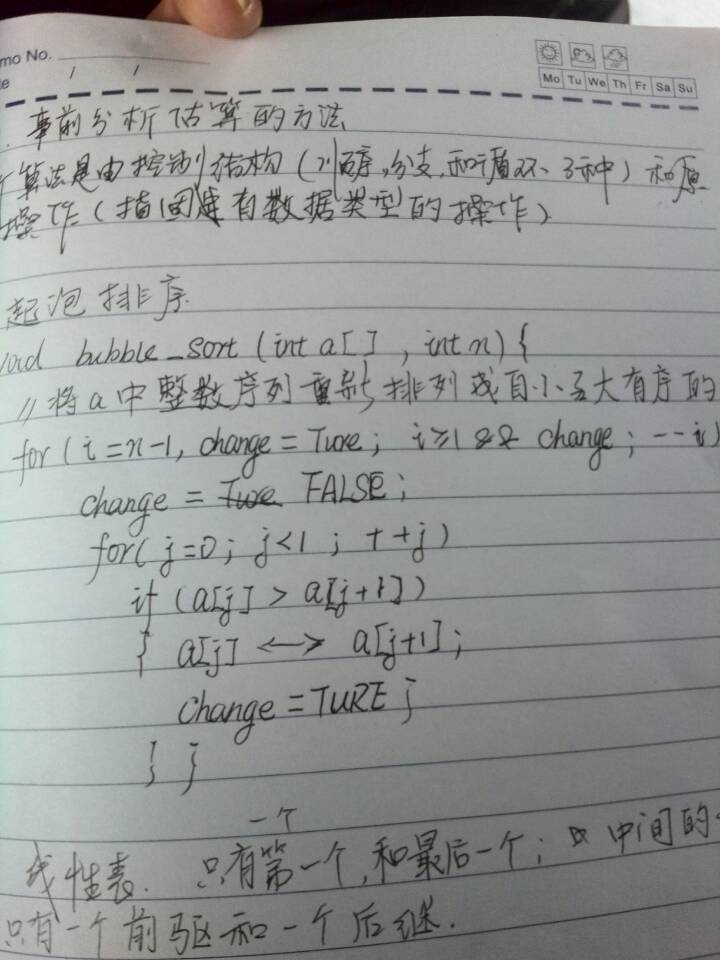 mo No.
Mo Tu We Th Fr Sa Su
事前分析估算的方法
算法是由控制结构(顺序,分支,和循环、3种)和原
操作(指固有数据类型的操作)
起泡排序
void bubble_sort (int a[] , int n) {
// 将a中整数序列重新排列成自小至大有序的
for (i=n-1, change = Ture; i≥1 && change; --i)
change = FALSE;
for( j=0; j<1; ++j)
if (a[j] > a[j+1])
{ a[j] <—> a[j+1];
change = TURE }
} }
一个
线性表. 只有第一个,和最后一个; 中间的
只有一个前驱和一个后继.